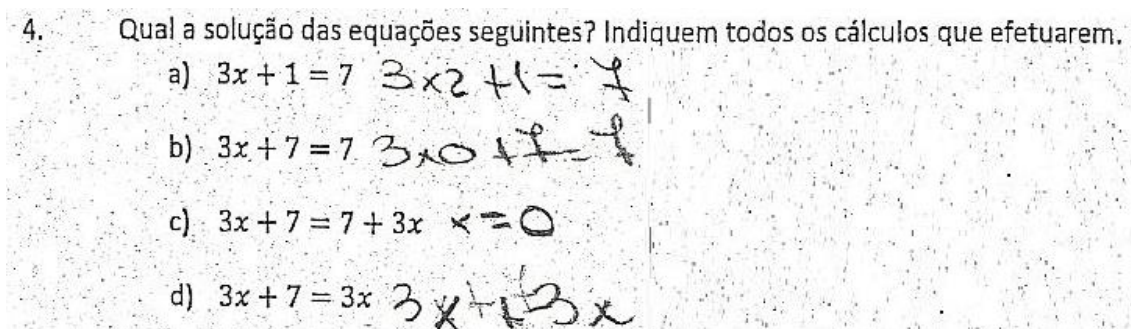 4. Qual a solução das equações seguintes? Indiquem todos os cálculos que efetuarem.
a) 3x + 1 = 7 3x2 +1 = 7
b) 3x + 7 = 7 3x0 +7 = 7
c) 3x + 7 = 7 + 3x x = 0
d) 3x + 7 = 3x 3x